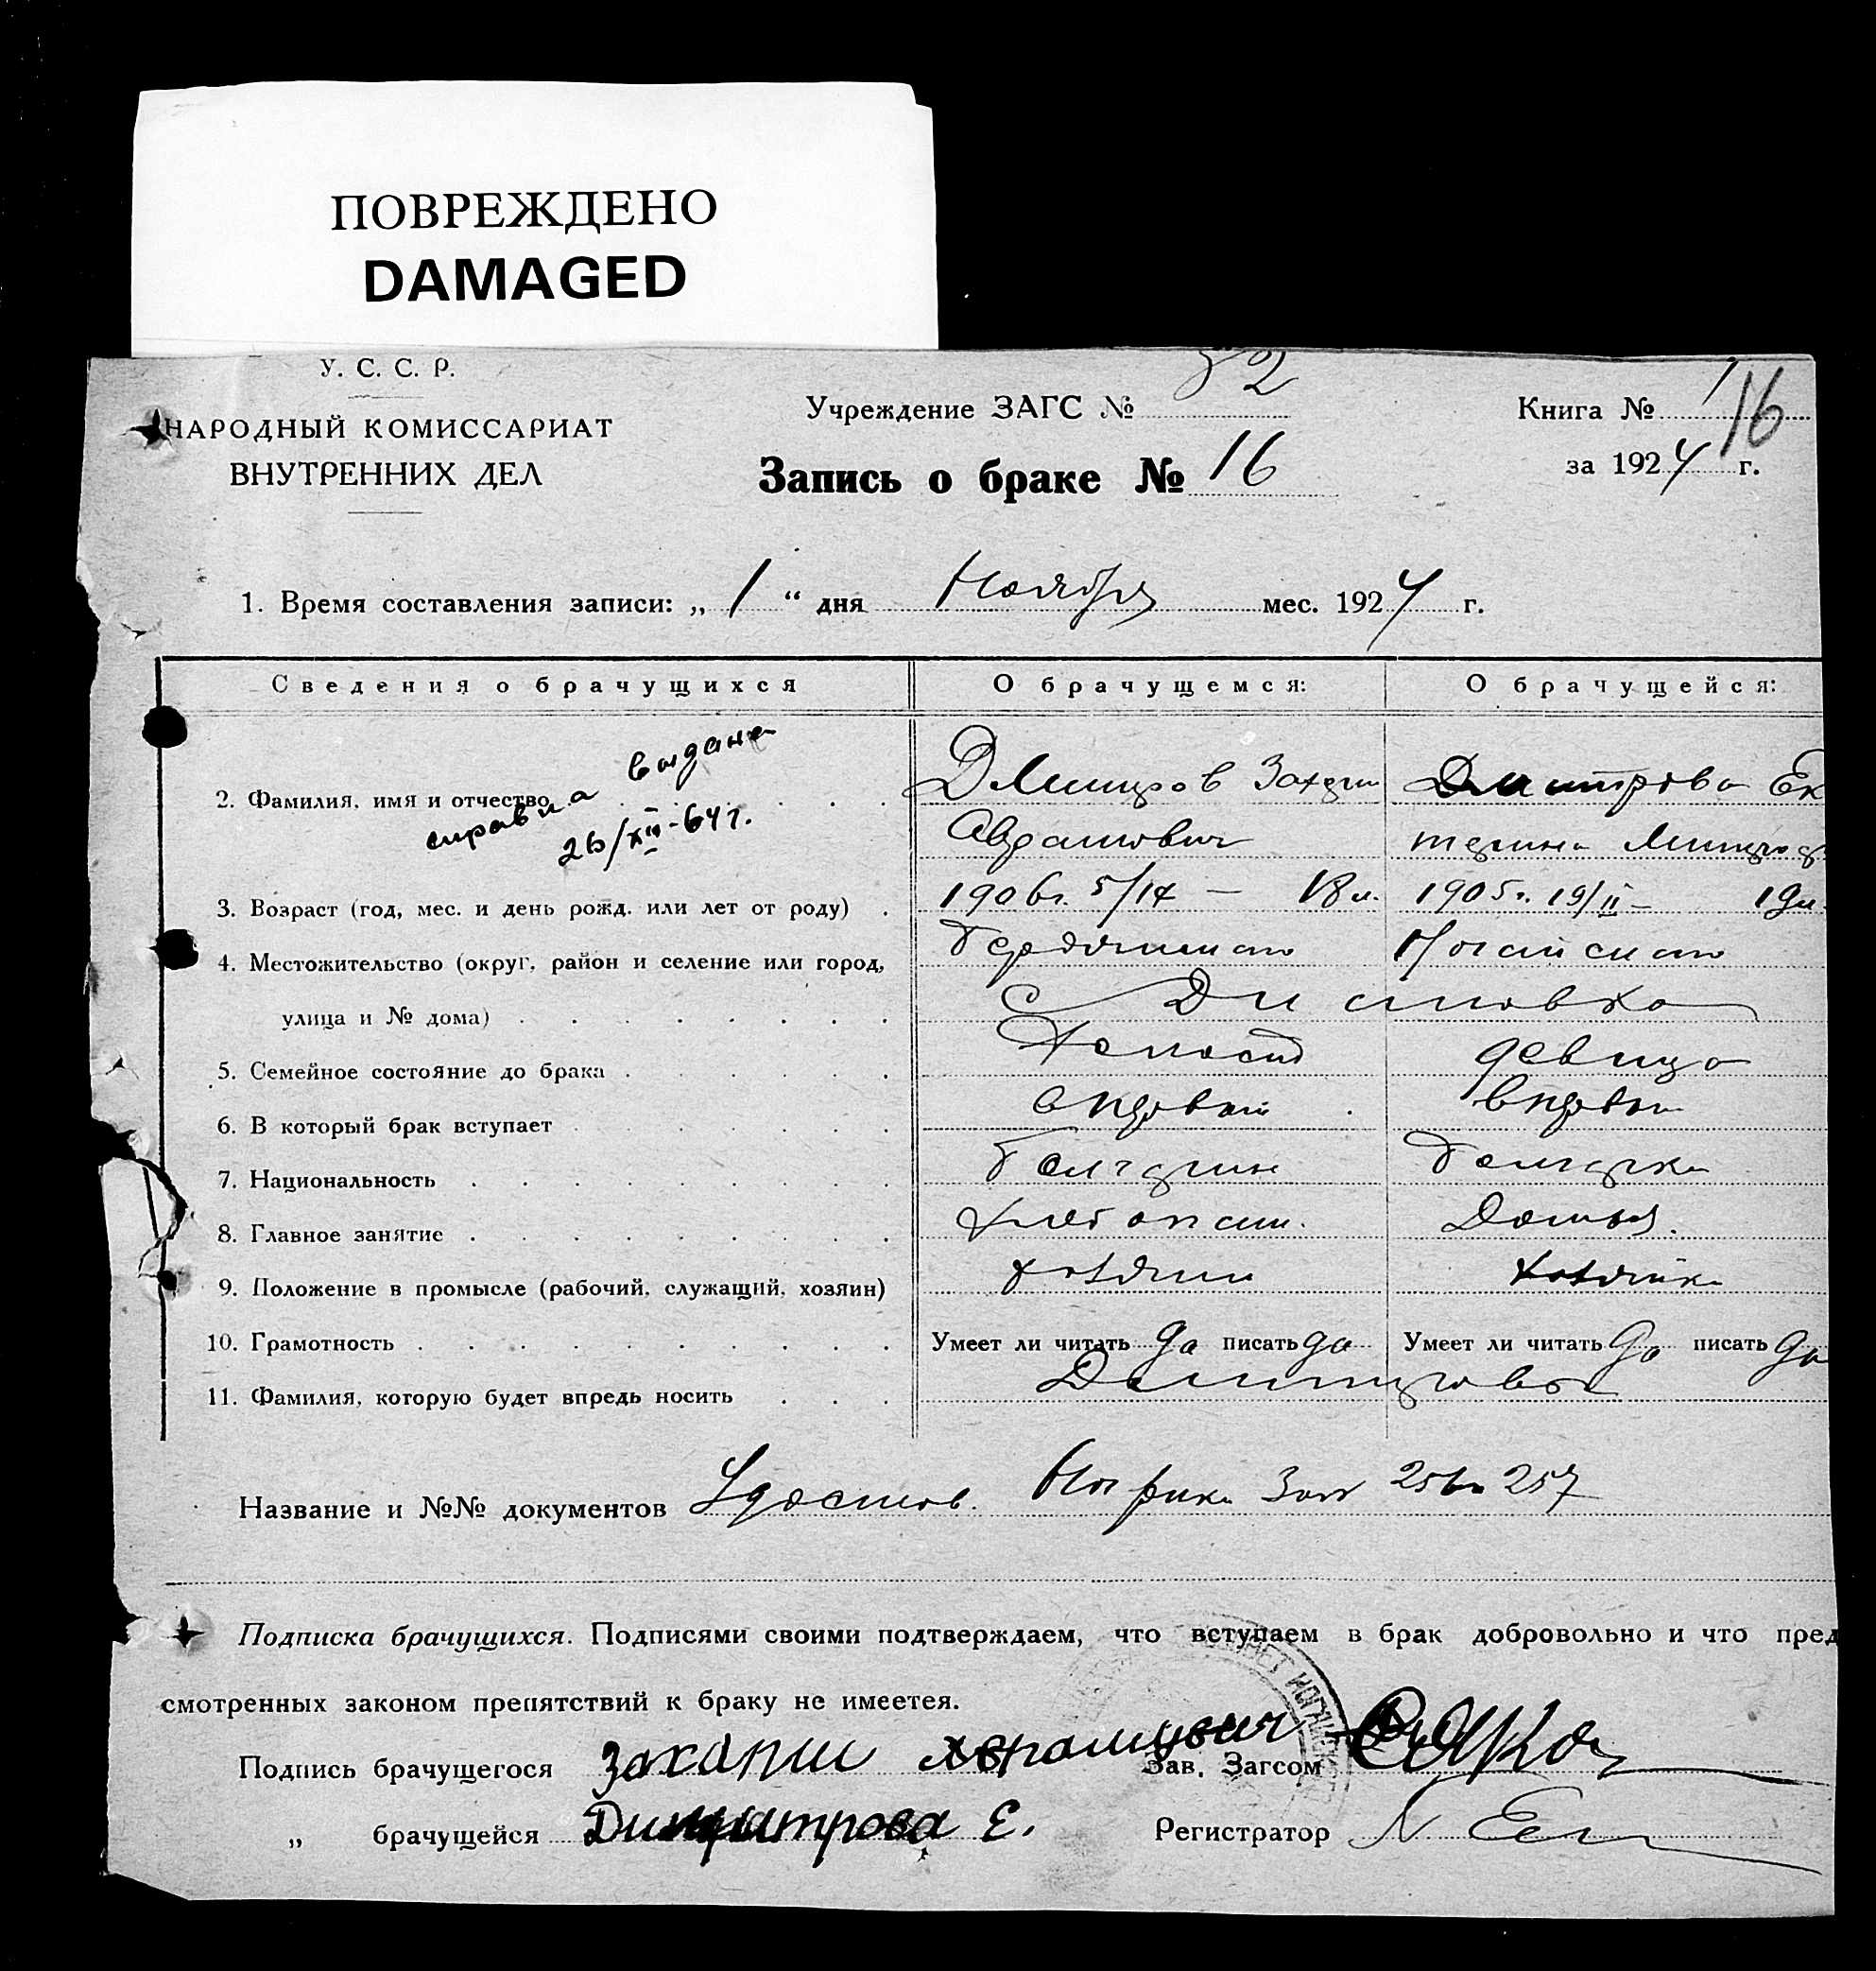 ПОВРЕЖДЕНО
DAMAGED
У. С. С. Р.
НАРОДНЫЙ КОМИССАРИАТ
ВНУТРЕННИХ ДЕЛ
Учреждение ЗАГС № 32
Запись о браке № 16
Книга № 1
16
за 1924 г.
1. Время составления записи: „ 1 “ дня Ноября мес. 1924 г.
Сведения о брачущихся О брачущемся: О брачущейся:
справка выдана
26/XII-64 г.
2. Фамилия, имя и отчество Дмитров Захарий Дмитрова Ека
Аврамович терина
3. Возраст (год, мес. и день рожд. или лет от роду) 1906 г. 5/IX — 18 л. 1905 г. 19/II — 19 л.
4. Местожительство (округ, район и селение или город, Ногайского
улица и № дома) с
5. Семейное состояние до брака Холост девица
6. В который брак вступает впервый впервый
7. Национальность Болгарин Болгарка
8. Главное занятие Хлебопаш. Домаш.
9. Положение в промысле (рабочий, служащий, хозяин) хозяин хозяйка
10. Грамотность Умеет ли читать да писать да Умеет ли читать да писать да
11. Фамилия, которую будет впредь носить
Название и №№ документов Удостов. 256 257
Подписка брачущихся. Подписями своими подтверждаем, что вступаем в брак добровольно и что пред
смотренных законом препятствий к браку не имеетея.
Подпись брачущегося Захарии Аврамович Зав. Загсом
„ брачущейся Димитрова Е. Регистратор